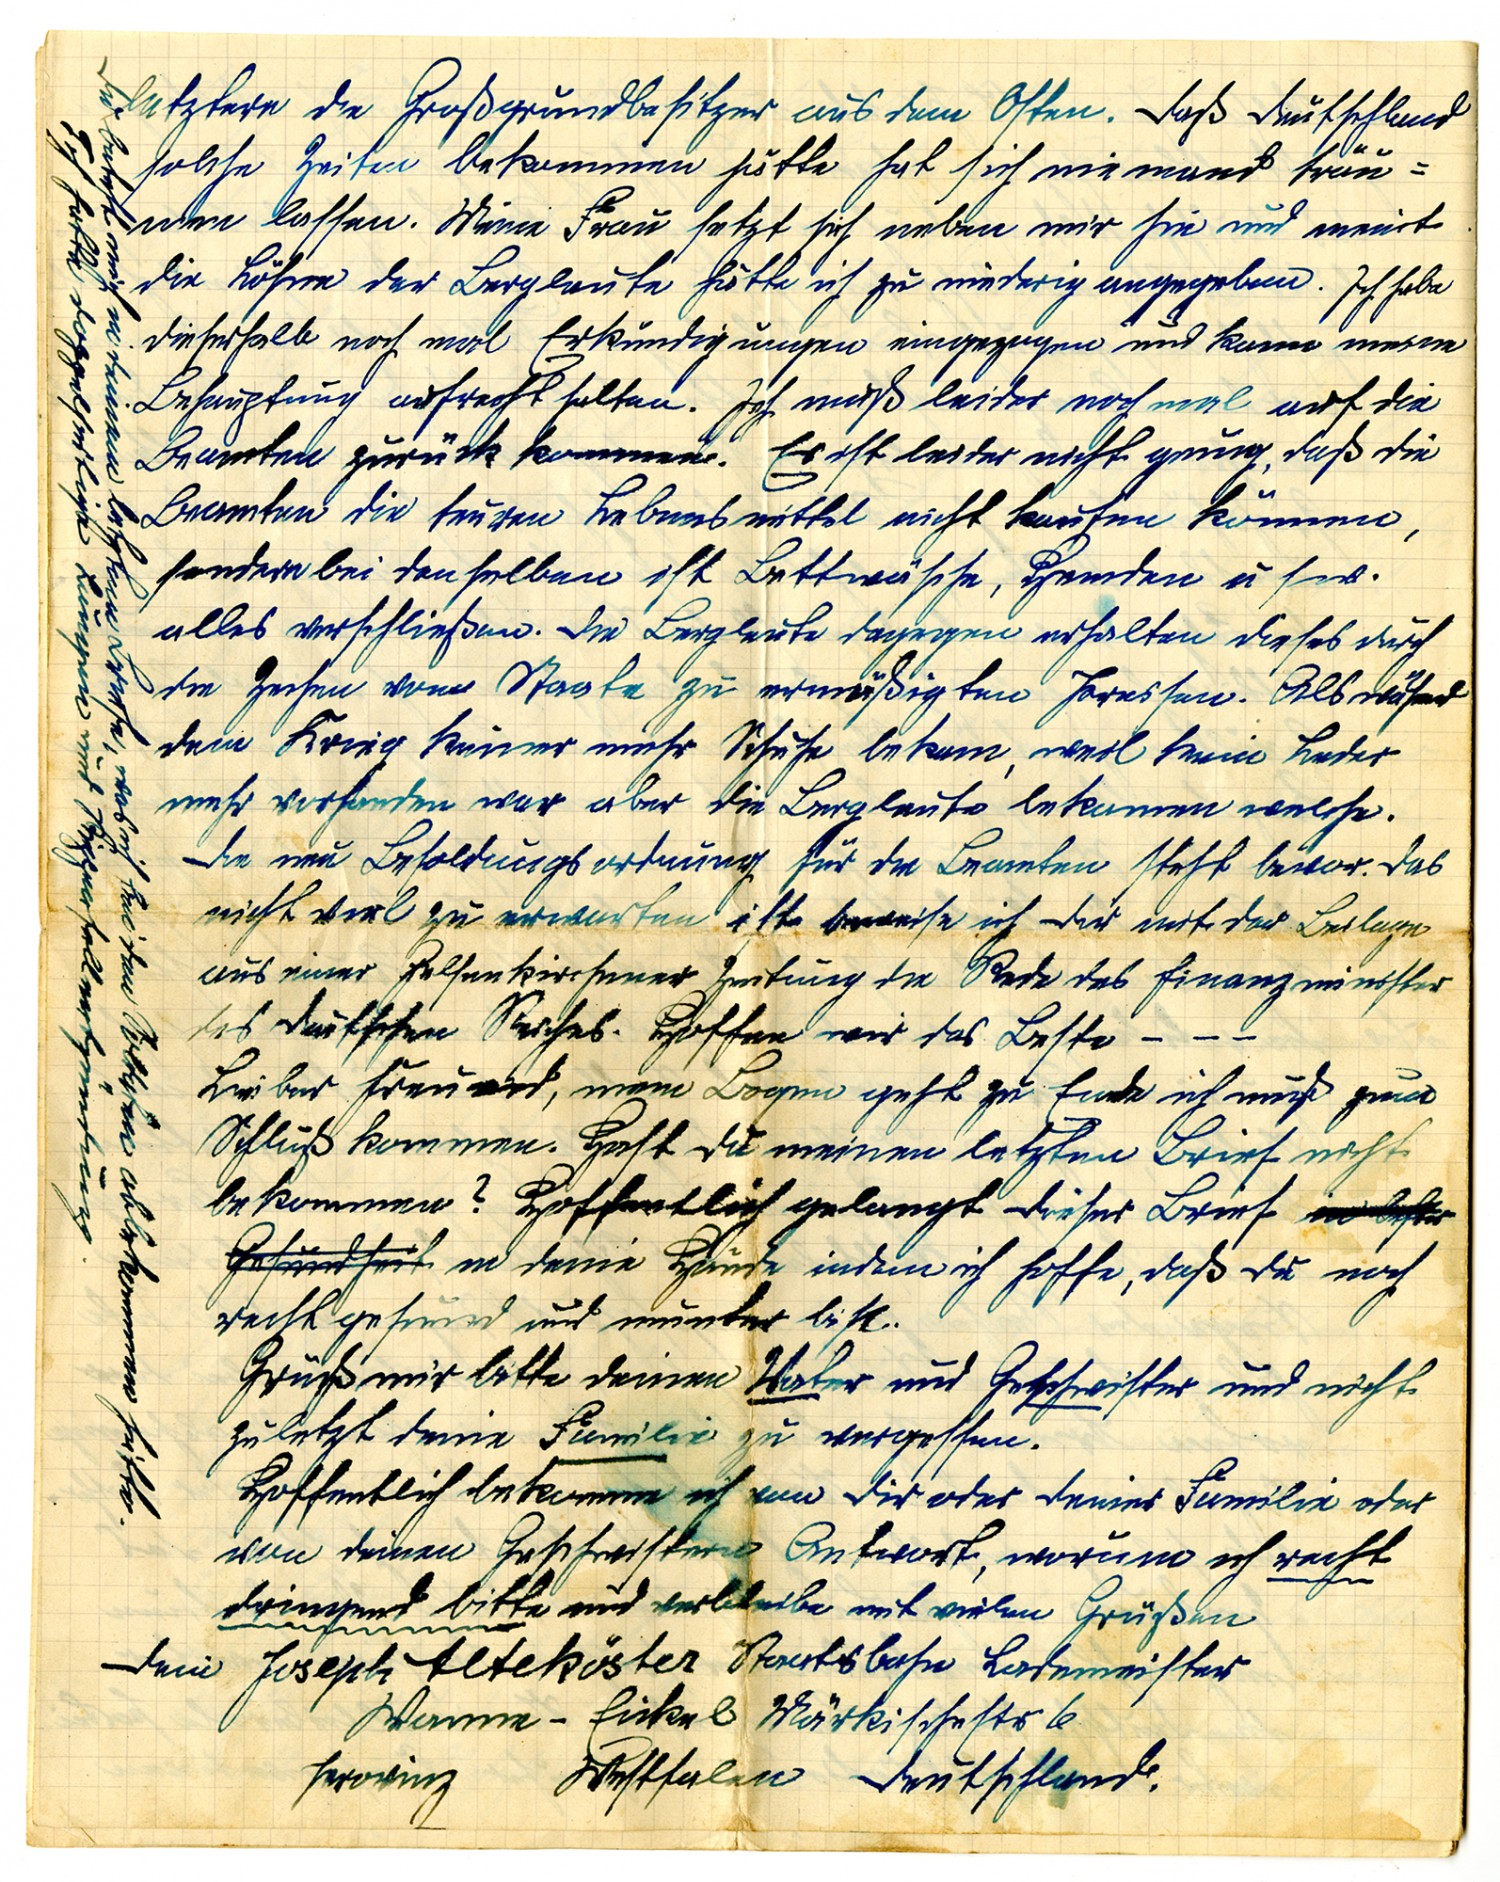 letztere die Großgrundbesitzer aus dem Osten. Daß Deutschland
solche Zeiten bekommen hätte hat sich niemand träu=
men lassen. Meine Frau setzt sich neben mir hin und meint
die Löhne der Bergleute hätte ich zu niederig angegeben. Ich habe
dieserhalb noch mal Erkündigungen eingezogen und kann meine
Behauptung aufrecht halten. Ich muß leider noch mal auf die
Beamten zurück kommen. Es ist leider nicht genug, daß die
Beamten die teuren Lebensmittel nicht kaufen können,
sondern bei denselben ist Bettwäsche, Hemden u s w.
alles verschließen. Die Bergleute dagegen erhalten dieses durch
die Zechen vom Staate zu ermäßigten Preissen. Als während
dem Krieg keiner mehr Schuhe bekam, weil kein Leder
mehr vorhanden war aber die Bergleute bekamen welche.
Die neu Besoldungsordnung für die Beamten steht bevor. Das
nicht viel zu erwarten ist beweise ich Dir mit der Beilage
aus einer Gelsenkirchener Zeitung die Rede des Finanzminister
des Deutschen Reiches. Hoffen wir das Beste - - -
Lieber Freund, mein Bogen geht zu Ende ich muß zum
Schluß kommen. Hast Du meinen letzten Brief nicht
bekommen? Hoffentlich gelangt dieser Brief in bester
Gesundheit in deine Hände indem ich hoffe, daß Du noch
recht gesund und munter bist.
Grüß mir bitte deinen Vater und Geschwister und nicht
zuletzt deine Familie zu vergessen.
Hoffentlich bekomme ich von Dir oder deiner Familie oder
von deinen Geschwistern Antwort, worum ich recht
dringend bitte und verbleibe mit vielen Grüßen
Dein Joseph Alteköster Staatsbahn Lademeister
Wanne - Eickel Märkischestr 6
Provinz Westfalen Deutschland.
Ich hatte doppelseitige Lungen und